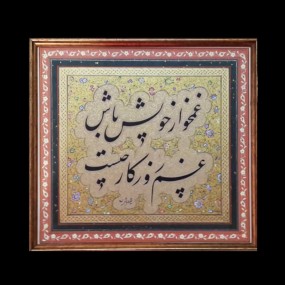 غمخوار خویش باش
غم روزگار چیست